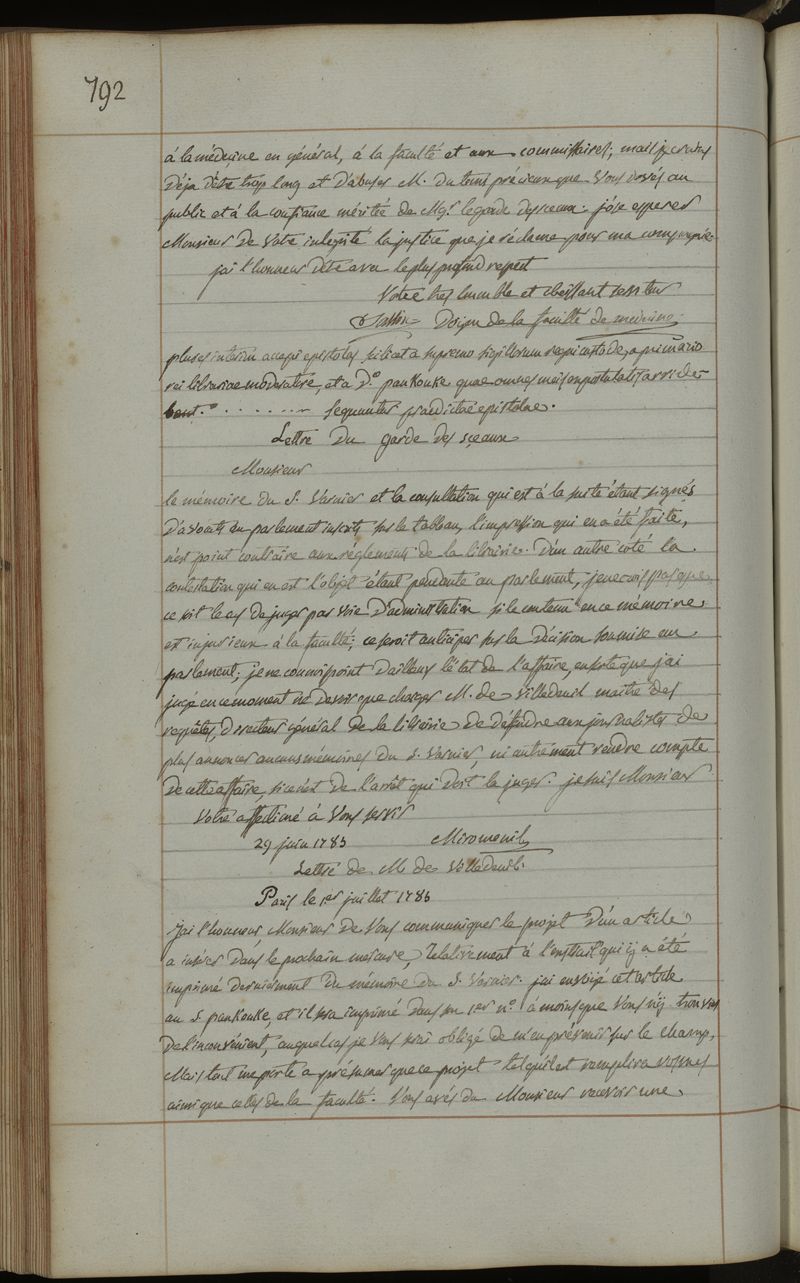 792
à la médecine en général, à la faculté et aux commissaires; mais je crains
déja d'être trop long et d'abuser M. du tems précieux que vous devés au
public et à la confiance méritée de Mgr. le garde des sceaux. j'ose esperer
Monsieur de votre integrité la justice que je réclame pour ma compagnie.
j'ai l'honneur d'être avec le plus profond respect
Votre très humble et obéissant serviteur
Doyen de la faculté de medecine.
plures interim accepi epistolas scilicet a supremo sigillorum regni custode, a primario
rei librariae moderatore, et a D.º pankouke quae omnes meis postulatis arride-
bant. . . . . . . . sequuntur praedictae epistolae.
Lettre du garde des sceaux
Monsieur
le mémoire du S. Varnier et la consultation qui est à la suite étant signés
d'avocats en parlement inscrits sur le tableau, l'impression qui en a été faite,
n'est point contraire aux réglements de la librairie. D'un autre coté la
contestation qui en est l'objet étant pendante au parlement, je ne crois pas que
ce soit le cas de juger par voie d'administration si le contenu en ce mémoire
est injurieux à la faculté; ce seroit anticiper sur la décision soumise au
parlement; je ne connois point d'ailleurs l'état de l'affaire, ensorte que j'ai
jugé en ce moment ne devoir que charger M. de Villedeuil maitre des
requêtes, directeur général de la librairie de deffendre aux journalistes de
plus annoncer aucuns mémoires du S. Varnier, ni autrement rendre compte
de cette affaire, si ce n'est de l'arrêt qui doit la juger. je suis Monsieur
Votre affectioné à vous servir
29 juin 1785 Miromenil
Lettre de M. de Villedeuil.
Paris le 1er juillet 1785
J'ai l'honneur Monsieur de vous communiquer le projet d'un article
a insérer dans le prochain mercure, relativement à l'extrait qui y a été
imprimé dernierement du mémoire du S. Varnier. j'ai envoyé cet article
au S. pankouke, et il sera imprimé dans son 1er nº. à moins que vous n'y trouviés
de l'inconvénient, auquel cas je vous serai obligé de m'en prévenir sur le champ.
Mais tout me porte a présumer que ce projet tel qu'il est remplira vos vues
ainsi que celles de la faculté. Vous avés du Monsieur recevoir une